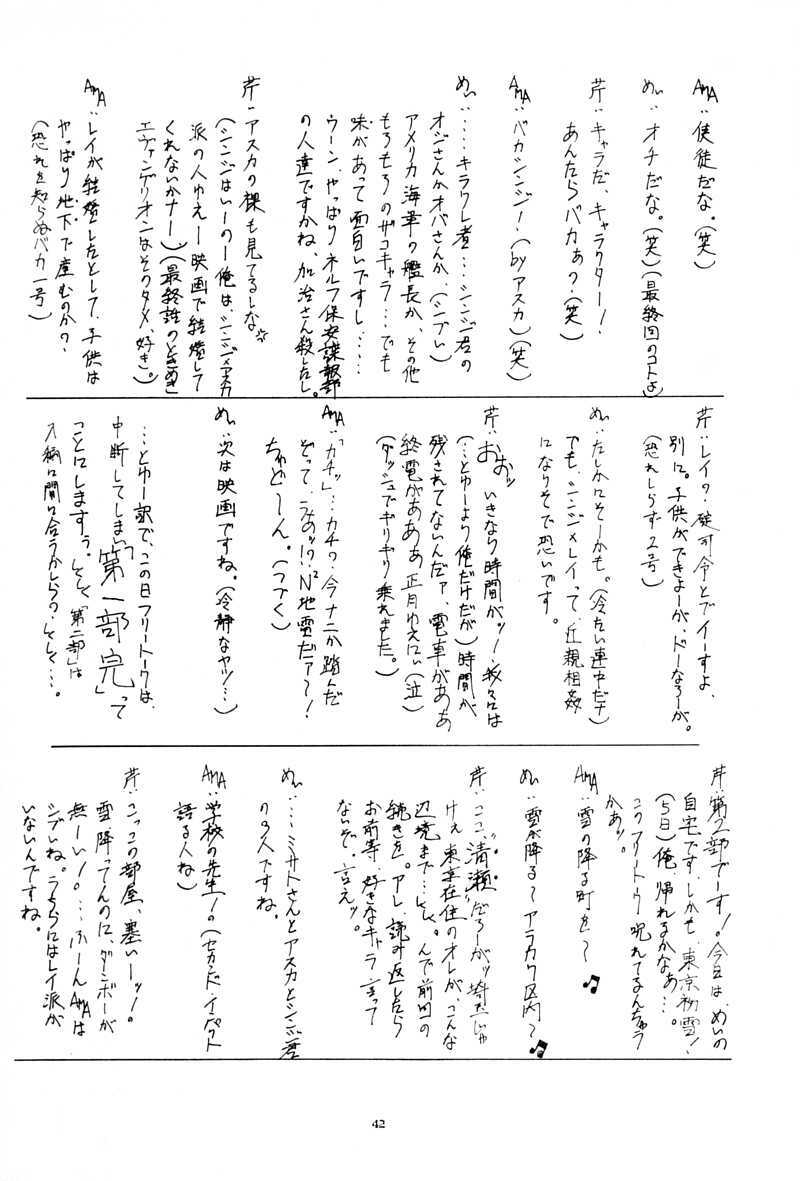 AMA：使徒だな。（笑）
めぃ：オチだな。（笑）（最終回のコトよ）
芹：キャラだ、キャラクター！
あんたらバカぁ？（笑）
AMA：バカシンジ！（byアスカ）（笑）
めぃ：……キラワレ者……シンジ君の
オジさんかオバさんか、（シブい）
アメリカ海軍の艦長か、その他
もろもろのザコキャラ…でも
味があって面白いですし……
ウーン、やっぱりネルフ保安諜報部
の人達ですかね、加治さん殺したし。
芹：アスカの裸も見てるしな
（シンジはいーのー俺は、シンジ×アスカ
派の人ゆえー映画で結婚して
くれないかナー）（最終話のときめき
エヴァンゲリオンはそのタメ、好き）。
AMA：レイが結婚したとして、子供は
やっぱり地下で産むのか？
（恐れを知らぬバカ一号）
芹：レイ？、碇司令とデイーすよ、
別に。子供ができよーが、ドーなろーが。
（恐れしらず2号）
めぃ：たしかにそーかも。（冷たい連中だナ）
でも、シンジ×レイって、近親相姦
になりそで恐いです。
芹：おおッ、いきなり時間がッ！我々には
（…とゆーより俺だけだが）時間が
残されてないんだァ、電車がああ
終電があああ正月ゆえにぃ（泣）
（ダッシュでギリギリ乗れました。）
AMA：「カチッ」…カチ？今ナニか踏んだ
ぞって、うおッ!?N²地雷だァ〜！
ちゅど〜ん。（つづく）
めぃ：次は映画ですね。（冷静なヤツ…）
…とゆー訳で、この日フリートークは、
中断してしまい「第一部完」って
ことにしますぅ。そしく「第二部」は
入稿に間に合うかしらの、そしく…。
芹：第2部でーす！。今日は、めぃの
自宅です、しかも、東京初雪！
（5日）俺、帰れるかなあ…。
このフリートーク呪れてるんちゃう
かあッ。
AMA：雪の降る町を〜♪
めぃ：雪が降る〜アラカワ区内〜♪
芹：ここ、清瀬だろーがッ埼玉じゃ
けぇ東京在住のオレが、こんな
辺境まで…しく。んで前回の
続きを。アレ、読み返したら
お前等、好きなキャラ言って
ないぞ、言えッ。
めぃ：……ミサトさんとアスカとシンジ君
の3人ですね。
AMA：学校の先生！。（セカンド・インパクト
語る人ね）
芹：こっこの部屋、寒いーッ！。
雪降ってんのに、ダンボーが
無ーい！。…ふーんAMAは
シブいね。うちらにはレイ派が
いないんですね。
42